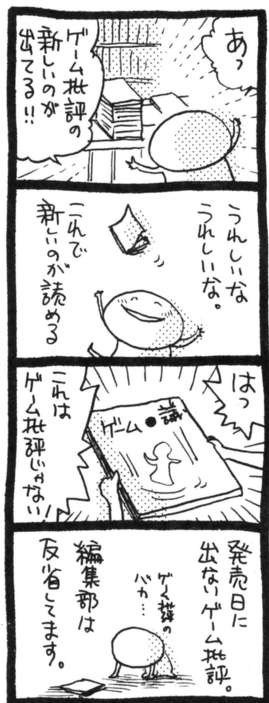 あっ
ゲーム批評の
新しいのが
出てる!!
うれしいな
うれしいな。
これで
新しいのが読める
はっ
ゲーム●批評
これは
ゲーム批評じゃない!
発売日に
出ないゲーム批評。
ゲーム批評の
バカ…
編集部は
反省してます。